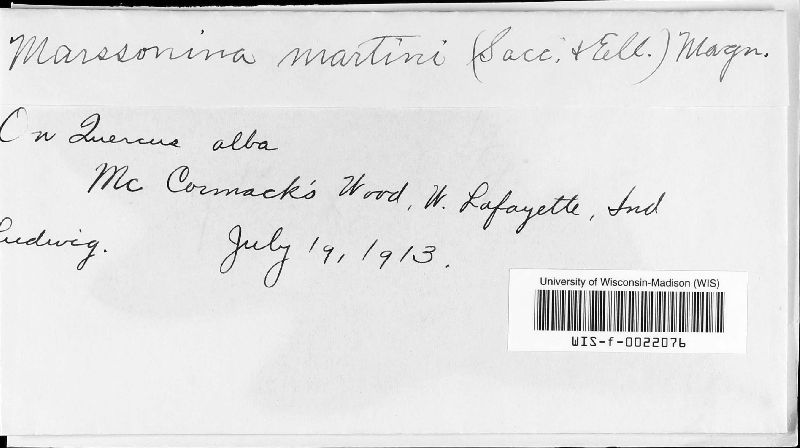 Marssonina martini (Sacc. & Ell.) Magn.
On Quercus alba
Mc Cormack's Wood, W. Lafayette, Ind
Ludwig. July 19, 1913.
University of Wisconsin-Madison (WIS)
WIS-f-0022076